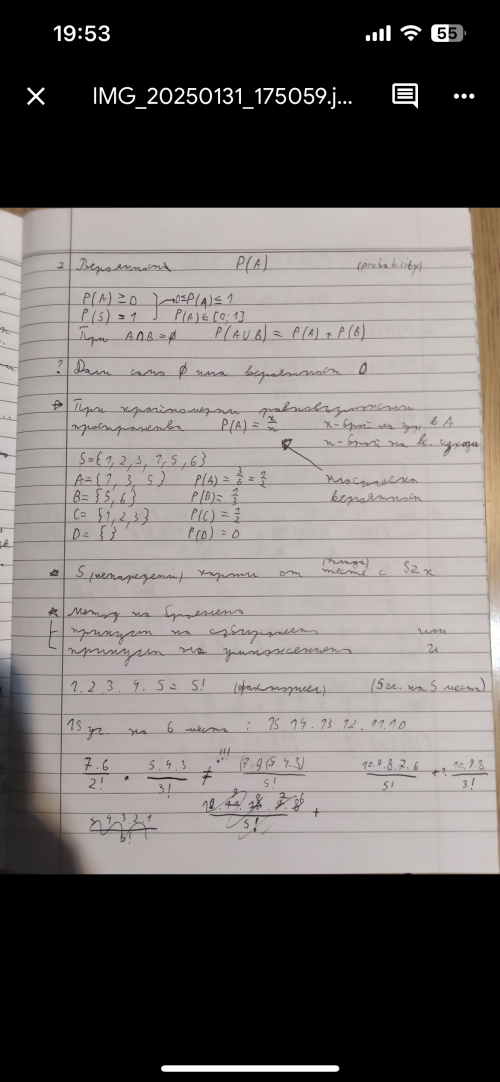 19:53
55
IMG_20250131_175059.j...
2 Вероятност P(A) (probability)
P(A) ≥ 0 0≤P(A)≤1
P(S) = 1 P(A)∈[0;1]
При A∩B=∅ P(A∪B) = P(A) + P(B)
? Дали само ∅ има вероятност 0
При равновъзможни
пространства P(A) = x/n x-брой на в A
n-брой на в. изходи
S={1,2,3,4,5,6}
A={1,3,5} P(A)=3/6=1/2 класическа
B={5,6} P(B)=1/3 вероятност
C={1,2,3} P(C)=1/2
D={} P(D)=0
5 (ненаредени) карти от тесте с 52 к
Метод на броенето
принцип на събирането или
принцип на умножението и
1.2.3.4.5 = 5! (факториел) (5 на 5 места)
15 уч. на 6 места : 15.14.13.12.11.10
!!!
7.6/2! . 5.4.3/3! ≠ /5! 10.9.8.7.6/5! + 10.9.8/3!
5!
+